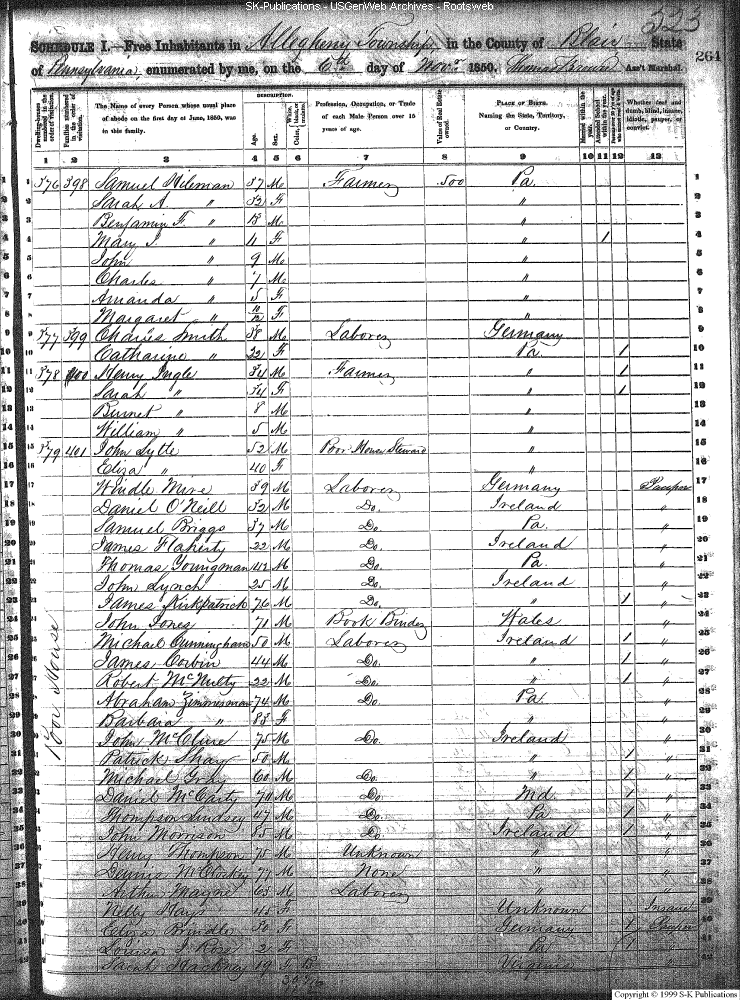 SK-Publications - USGenWeb Archives - Rootsweb
523
SCHEDULE I.—Free Inhabitants in Allegheny Township in the County of Blair State
of Pennsylvania, enumerated by me, on the 6th day of Novr 1850. Ass't Marshal.
264
DESCRIPTION.
Dwelling-houses numbered in the order of visitation.
Families numbered in the order of visitation.
The Name of every Person whose usual place of abode on the first day of June, 1850, was in this family.
Age.
Sex.
Color, White, black, or mulatto.
Profession, Occupation, or Trade of each Male Person over 15 years of age.
Value of Real Estate owned.
PLACE OF BIRTH. Naming the State, Territory, or Country.
Married within the year.
Attended School within the year.
Whether deaf and dumb, blind, insane, idiotic, pauper, or convict.
1 2 3 4 5 6 7 8 9 10 11 12 13
1 376 398 Samuel Hileman 37 M Farmer 500 Pa. 1
2 Sarah A. " 32 F " 2
3 Benjamin F. " 13 M " 3
4 Mary J. " 11 F " / 4
5 John " 9 M " 5
6 Charles " 7 M " 6
7 Amanda " 5 F " 7
8 Margaret " 10/12 F " 8
9 377 399 Charles Smith 38 M Laborer Germany 9
10 Catharine " 32 F Pa. / 10
11 378 400 Henry Ingle 34 M Farmer " / 11
12 Sarah " 34 F " / 12
13 Burnet " 8 M " 13
14 William " 5 M " 14
15 379 401 John Lytle 52 M Poor House Steward " 15
16 Eliza " 40 F " 16
17 Windle Mire 39 M Laborer Germany Pauper 17
18 Daniel O'Neill 32 M Do. Ireland " 18
19 Samuel Briggs 37 M Do. Pa. " 19
20 James Flaherty 22 M Do. Ireland " 20
21 Thomas Youngman 42 M Do. Pa. " 21
22 John Lynch 25 M Do. Ireland " 22
23 James Kirkpatrick 76 M Do. " / " 23
24 John Jones 71 M Book Binder Wales " 24
25 Michael Cunningham 50 M Laborer Ireland / " 25
26 James Corbin 44 M Do. " / " 26
27 Robert McNulty 22 M Do. " / " 27
28 Abraham Zimmerman 74 M Do. Pa. " 28
29 Barbara " 83 F " " 29
30 John McClure 75 M Do. Ireland " 30
31 Patrick 50 M " / " 31
32 Michael 60 M Do. " / " 32
33 Daniel McCarty 70 M Do. Md. / " 33
34 Thompson Lindsey 47 M Do. Pa. / " 34
35 John Morrison 85 M Do. Ireland / " 35
36 Henry Thompson 75 M Unknown " " 36
37 Dennis McCloskey 77 M None " " 37
38 Arthur Mayne 63 M Laborer " " 38
39 Nelly Hays 45 F Unknown Insane 39
40 Eliza Brindle 30 F Germany / Pauper 40
41 Louisa J. Rose 2 F Pa. / " 41
42 19 F B Virginia " 42
Poor House
Copyright © 1999 S-K Publications